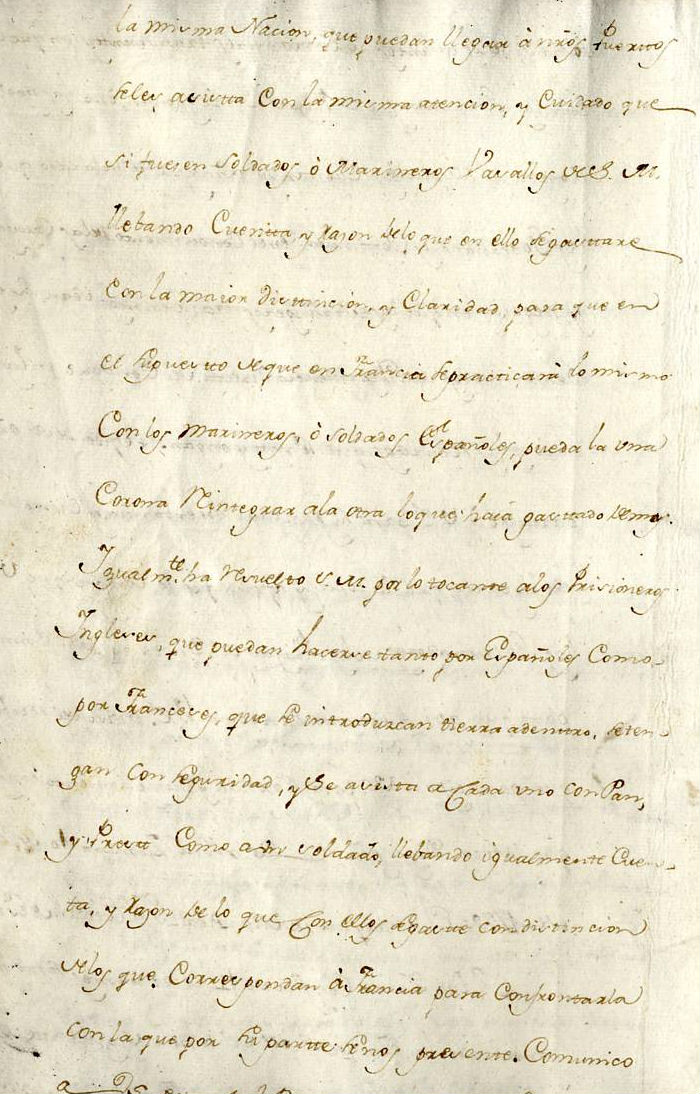 la misma Nacion, que puedan llegar à nr̃os Puertos
se les asistta Con la misma atencion, y Cuidado que
si fuesen Soldados, ò Marineros Vasallos de S. M.
llebando Cuentta, y Razon de lo que en ello se gasttare
Con la maior disttincion, y Claridad, para que en
el supuestto de que en Francia se practicarà lo mismo
Con los Marineros, ò Soldados Españoles, pueda la una
Corona Reintegrar a la otra lo que haia gasttado demas.
Igualmte. ha Resuelto S. M. por lo tocante a los Prisioneros
Ingleses, que puedan hacerse tanto por Españoles Como
por Franceses, que se introduzcan tierra adentro, se ten-
gan con seguridad, y Se asista a Cada uno con Pan,
y Prestt Como a un soldado, llebando igualmente Cuen-
ta, y Razon de lo que Con ellos se gaste con distincion
de los que Correspondan à Francia para Confrontarla
con la que por su partte se nos presente. Comunico